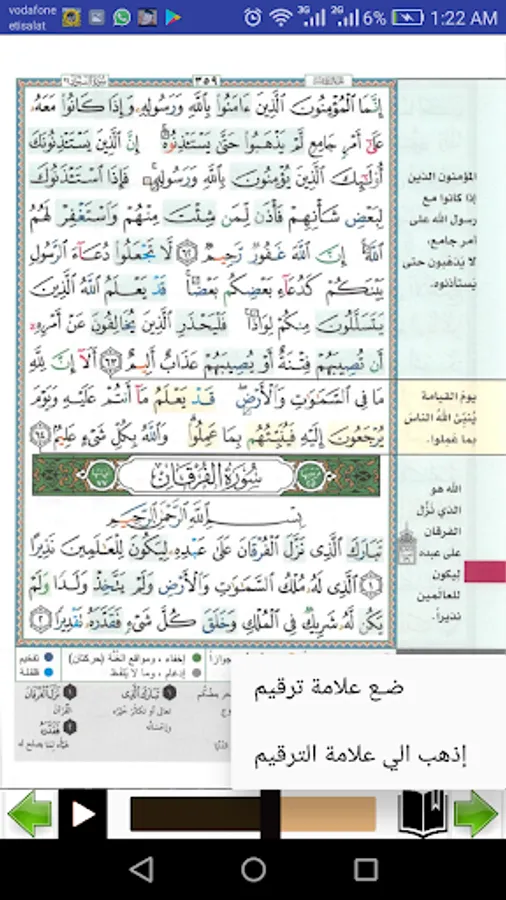 vodafone
etisalat
3G
2G
6%
1:22 AM
٣٥٩
إِنَّمَا الْمُؤْمِنُونَ الَّذِينَ ءَامَنُوا بِاللَّهِ وَرَسُولِهِ وَإِذَا كَانُوا مَعَهُ
عَلَىٰ أَمْرٍ جَامِعٍ لَمْ يَذْهَبُوا حَتَّىٰ يَسْتَـْٔذِنُوهُ إِنَّ الَّذِينَ يَسْتَـْٔذِنُونَكَ
أُو۟لَـٰٓئِكَ الَّذِينَ يُؤْمِنُونَ بِاللَّهِ وَرَسُولِهِ فَإِذَا اسْتَـْٔذَنُوكَ
لِبَعْضِ شَأْنِهِمْ فَأْذَن لِّمَن شِئْتَ مِنْهُمْ وَاسْتَغْفِرْ لَهُمُ
اللَّهَ إِنَّ اللَّهَ غَفُورٌ رَّحِيمٌ ٦٢ لَّا تَجْعَلُوا دُعَاءَ الرَّسُولِ
بَيْنَكُمْ كَدُعَاءِ بَعْضِكُم بَعْضًا قَدْ يَعْلَمُ اللَّهُ الَّذِينَ
يَتَسَلَّلُونَ مِنكُمْ لِوَاذًا فَلْيَحْذَرِ الَّذِينَ يُخَالِفُونَ عَنْ أَمْرِهِ
أَن تُصِيبَهُمْ فِتْنَةٌ أَوْ يُصِيبَهُمْ عَذَابٌ أَلِيمٌ ٦٣ أَلَا إِنَّ لِلَّهِ
مَا فِي السَّمَـٰوَٰتِ وَالْأَرْضِ قَدْ يَعْلَمُ مَا أَنتُمْ عَلَيْهِ وَيَوْمَ
يُرْجَعُونَ إِلَيْهِ فَيُنَبِّئُهُم بِمَا عَمِلُوا وَاللَّهُ بِكُلِّ شَيْءٍ عَلِيمٌ ٦٤
سُورَةُ الْفُرْقَانِ
بِسْمِ اللَّهِ الرَّحْمَـٰنِ الرَّحِيمِ
تَبَارَكَ الَّذِي نَزَّلَ الْفُرْقَانَ عَلَىٰ عَبْدِهِ لِيَكُونَ لِلْعَـٰلَمِينَ نَذِيرًا
١ الَّذِي لَهُ مُلْكُ السَّمَـٰوَٰتِ وَالْأَرْضِ وَلَمْ يَتَّخِذْ وَلَدًا وَلَمْ
يَكُن لَّهُ شَرِيكٌ فِي الْمُلْكِ وَخَلَقَ كُلَّ شَيْءٍ فَقَدَّرَهُ تَقْدِيرًا ٢
المؤمنون الذين
إذا كانوا مع
رسول الله على
أمر جامع،
لا يذهبون حتى
يستأذنوه.
يوم القيامة
يُنبّئ الله الناس
بما عملوا.
الله هو
الذي نَزَّل
الفرقان
على عبده
ليكون
للعالمين
نذيراً.
إخفاء ، ومواقع الغُنَّة (حركتان)
تفخيم
إدغام ، وما لا يُلفظ
قلقلة
تَبَارَكَ الَّذِي
نَزَّلَ الْفُرْقَانَ
القرآن
فَقَدَّرَهُ
ضع علامة ترقيم
إذهب الي علامة الترقيم